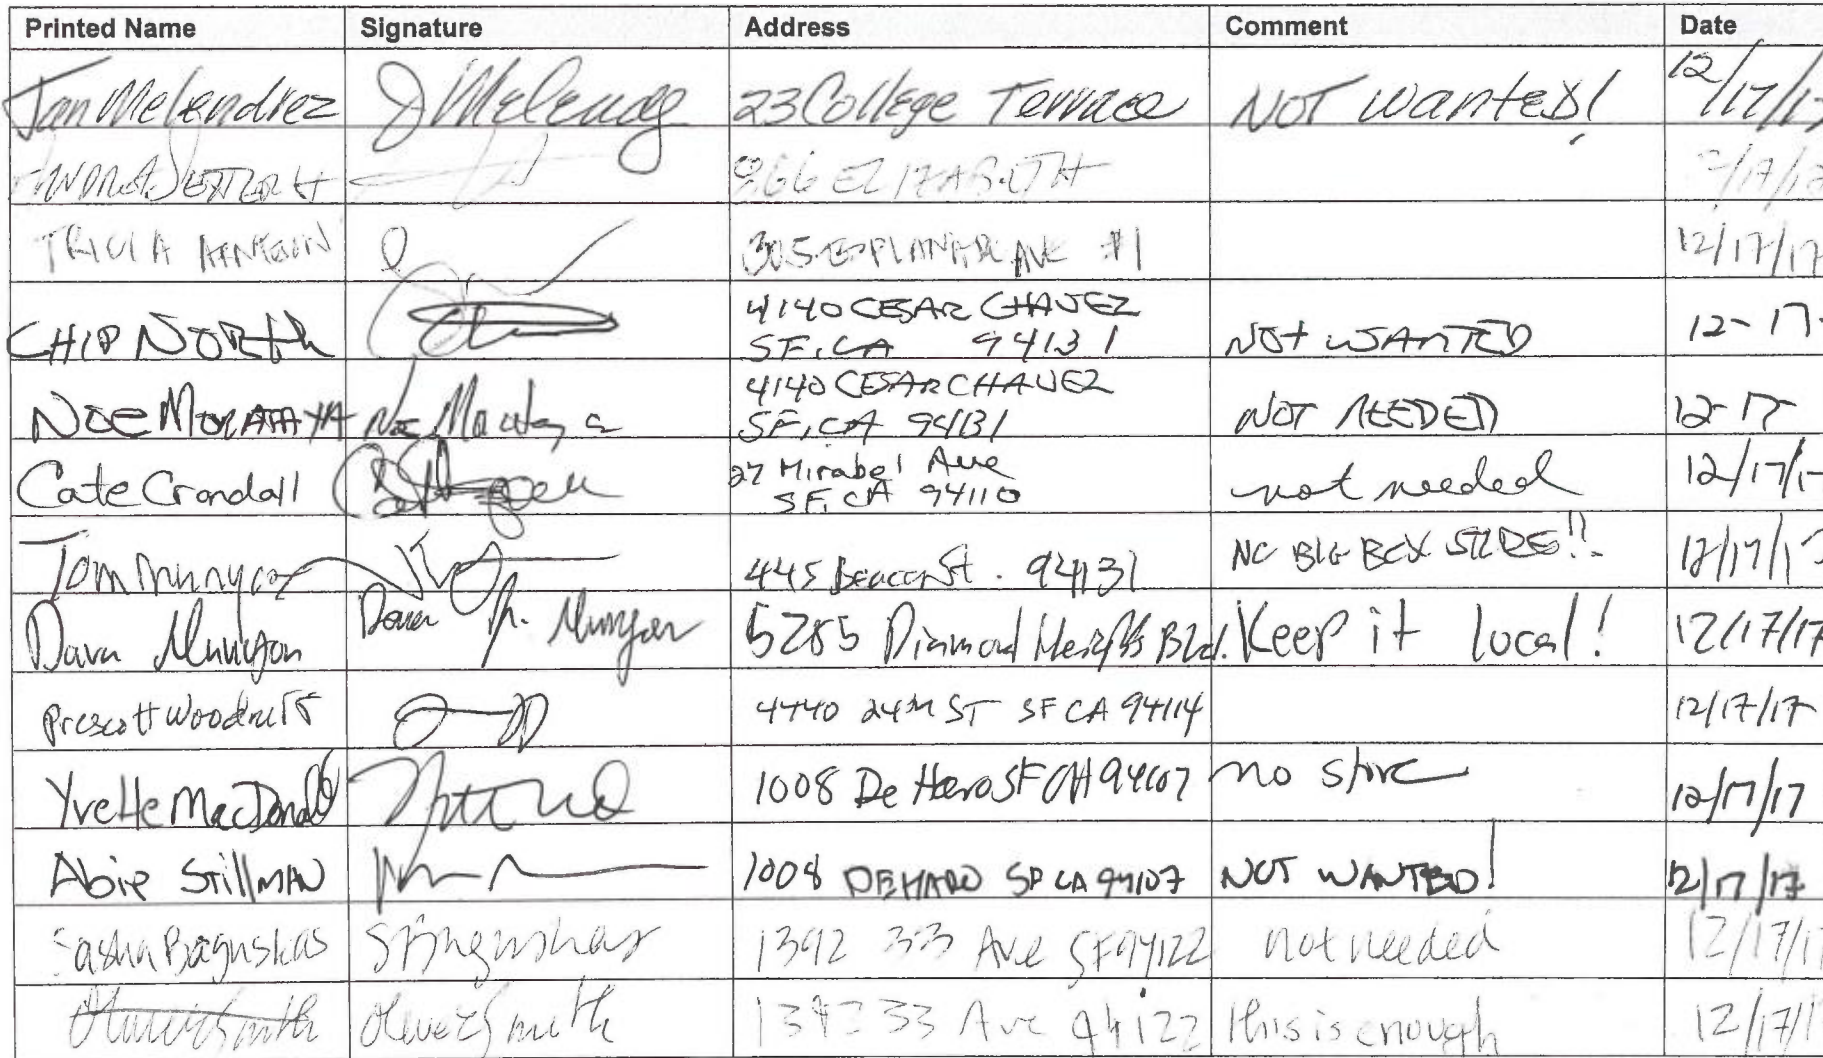 Printed Name Signature Address Comment Date
Jan Melendrez J Melendez 23 College Terrace NOT wanted! 12/17/17
966 ELIZABETH /17/17
TRICIA 305 ESPLANADE AVE #1 12/17/17
4140 CESAR CHAVEZ
CHIP NORTH SF, CA 94131 NOT WANTED 12-17-
4140 CESAR CHAVEZ
NOE MORATAYA Noe Morataya SF, CA 94131 NOT NEEDED 12-17
27 Mirabel Ave
Cate Crandall SF, CA 94110 not needed 12/17/1
NO BIG BOX STORE!!
Tom Munyon 445 Beacon St. 94131 12/17/1
Dava Munyon Dava M. Munyon 5285 Diamond Heights Blvd. Keep it local! 12/17/17
Prescott Woodruff 4440 24th ST SF CA 94114 12/17/17
Yvette MacDonald 1008 De Haro SF CA 94107 no store 12/17/17
Abie Stillman 1008 DEHARO SF CA 94107 NOT WANTED! 12/17/17
Sasha Baguskas SBaguskas 1392 33 Ave SF 94122 not needed 12/17/17
Oliver Smith Oliver Smith 1392 33 Ave 94122 this is enough 12/17/1